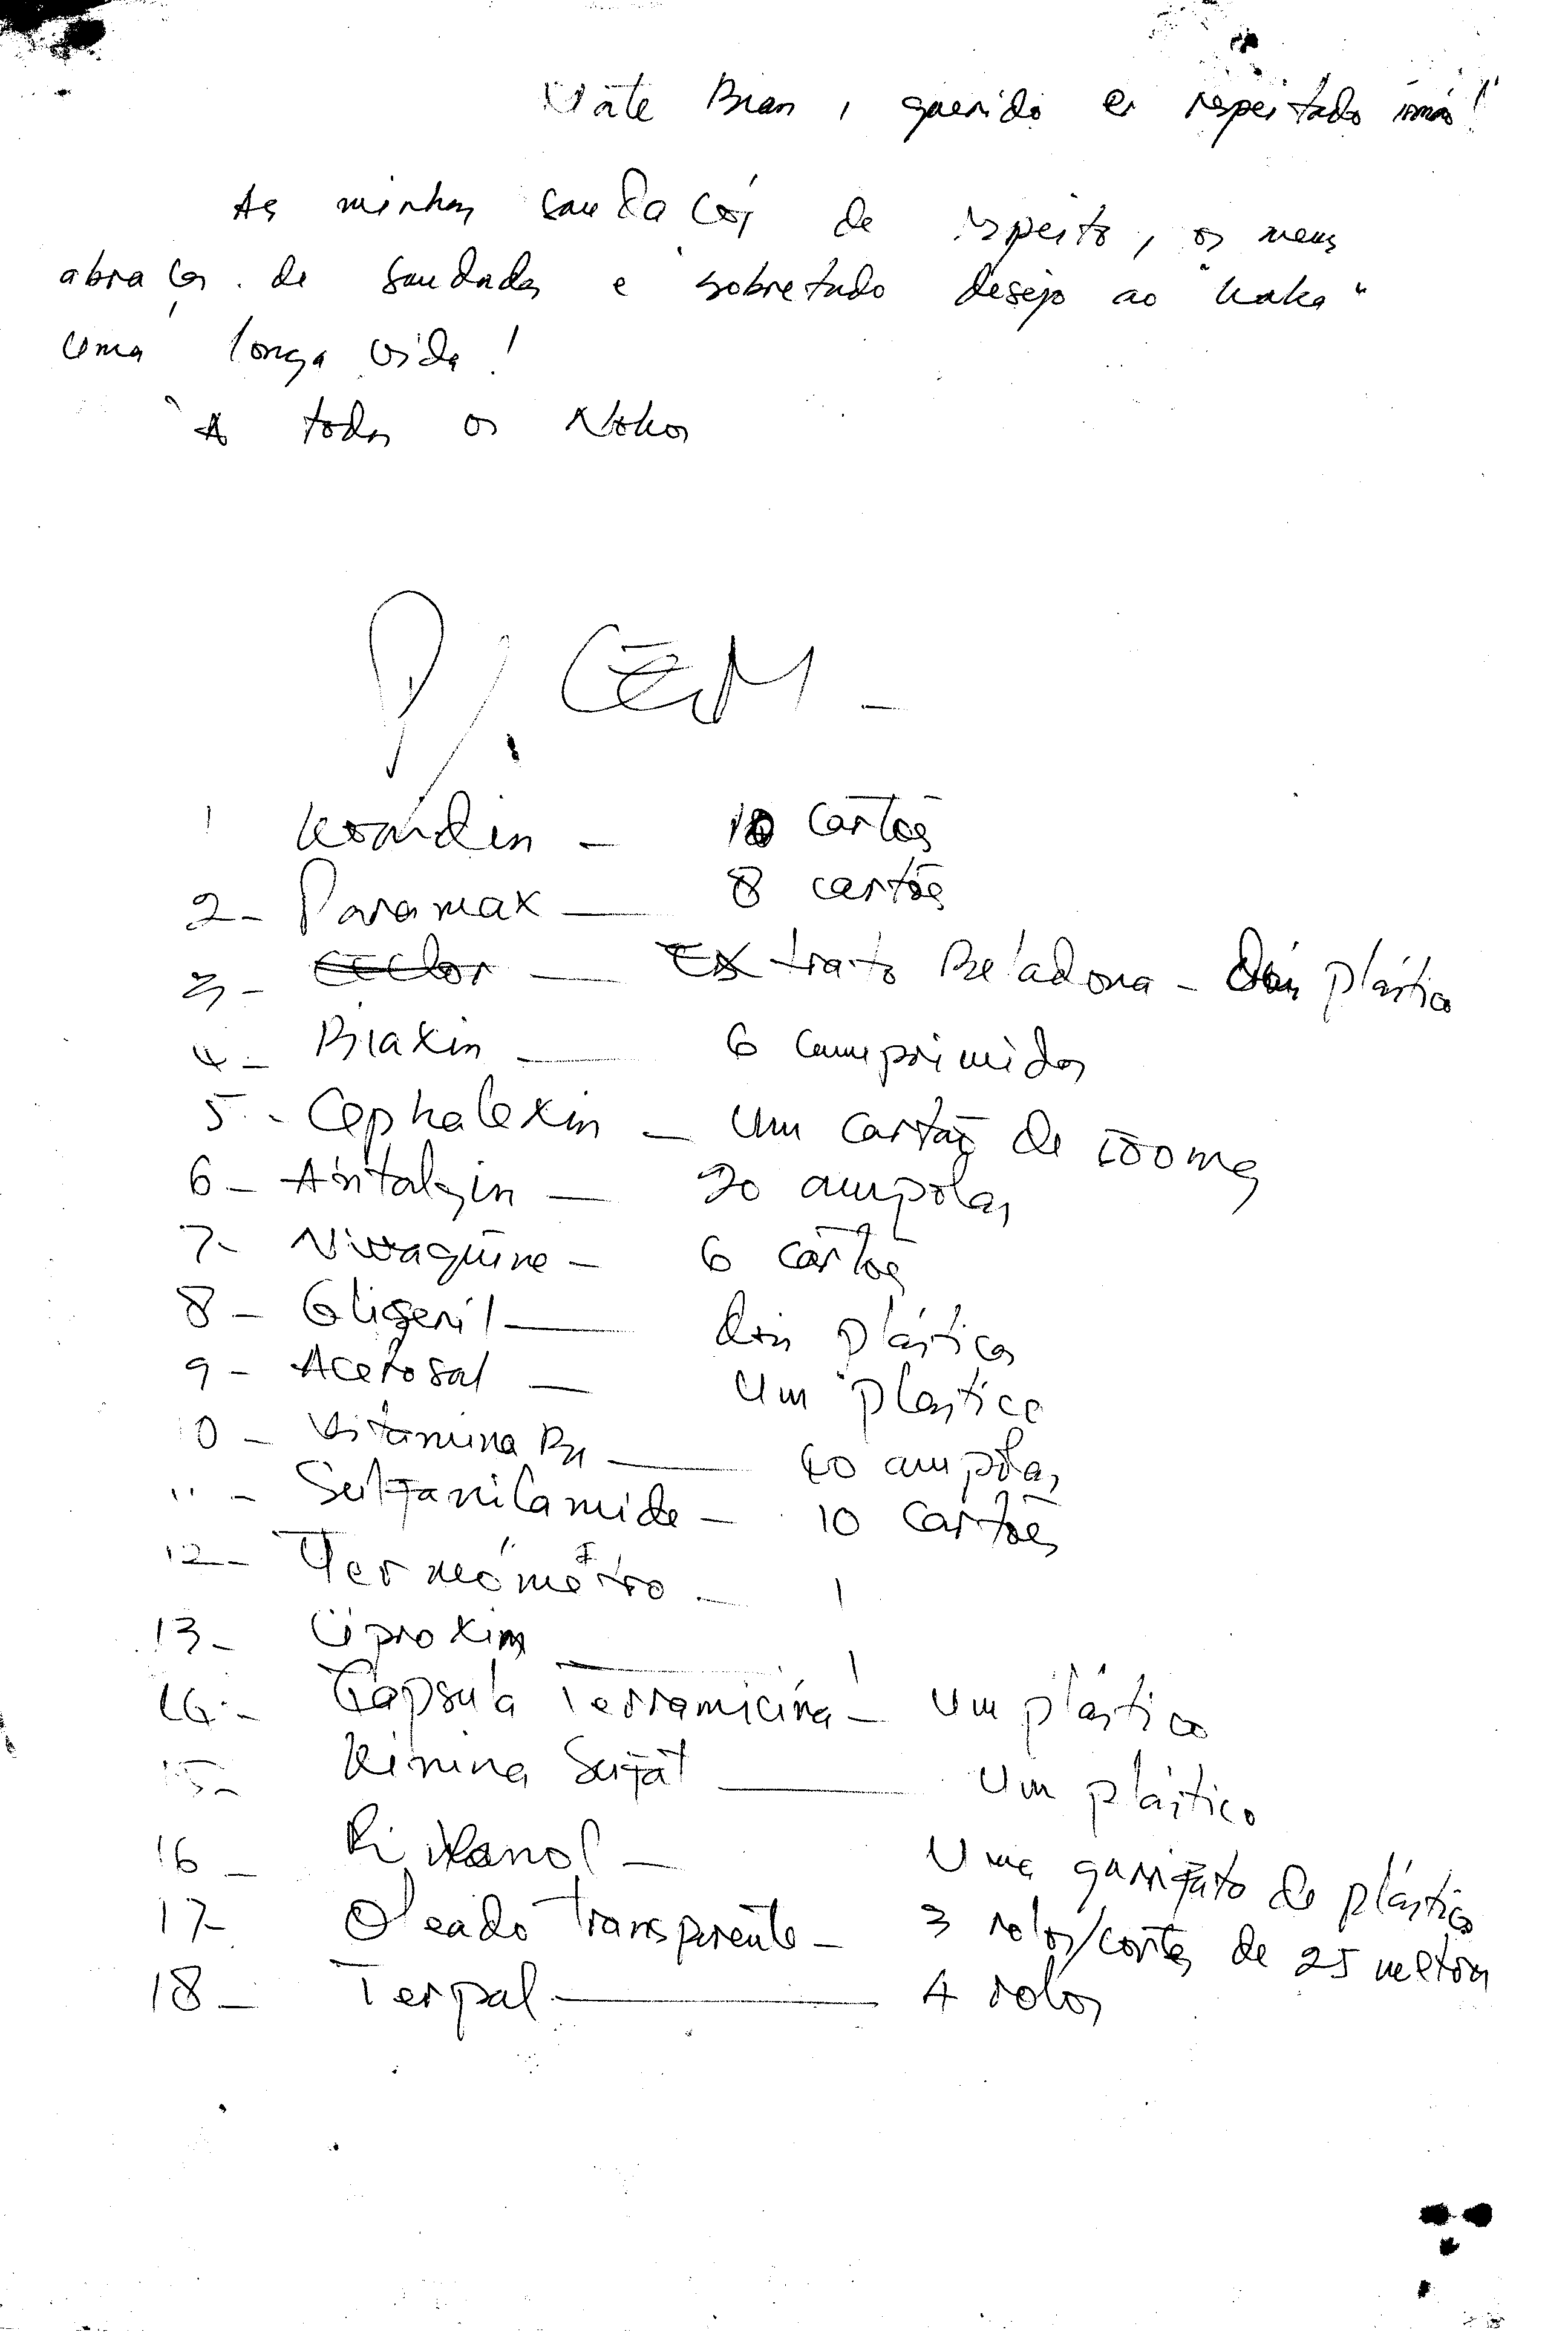 Mate Bian, querido e respeitado irmão!
As minhas saudações de respeito, os meus
abraços de saudades e sobretudo desejo ao "kaka"
uma longa vida!
A todos os
P/ CEM -
1 Koardin - 10 cartões
2- Paramax — 8 cartões
3- Ceclor — Extrato Beladona - dois plástico
4- Biaxin — 6 cumprimidos
5- Cephalexin - um cartão de 500 mg
6- Antalgin — 20 ampolas
7- Nivaquine - 6 cartões
8- Gliseril — dois plásticos
9- Acetosal — um plastico
10- Vitamina B12 — 40 ampolas
11- Sulfanilamide - 10 cartões
12- Termómetro - 1
13- Ciproxim
14- Capsula Terramicina - um plástico
15- Kinina Sulfat — um plástico
16- Rivanol - Uma garrafato de plástico
17- Oleado transparente - 3 rolos/cortes de 25 metros
18- Terpal — 4 rolos